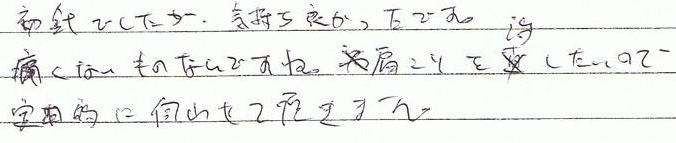 初針でしたが、気持ち良かったです。
痛くないものなんですね。肩こりを治したいので
定期的に伺わせて頂きます。